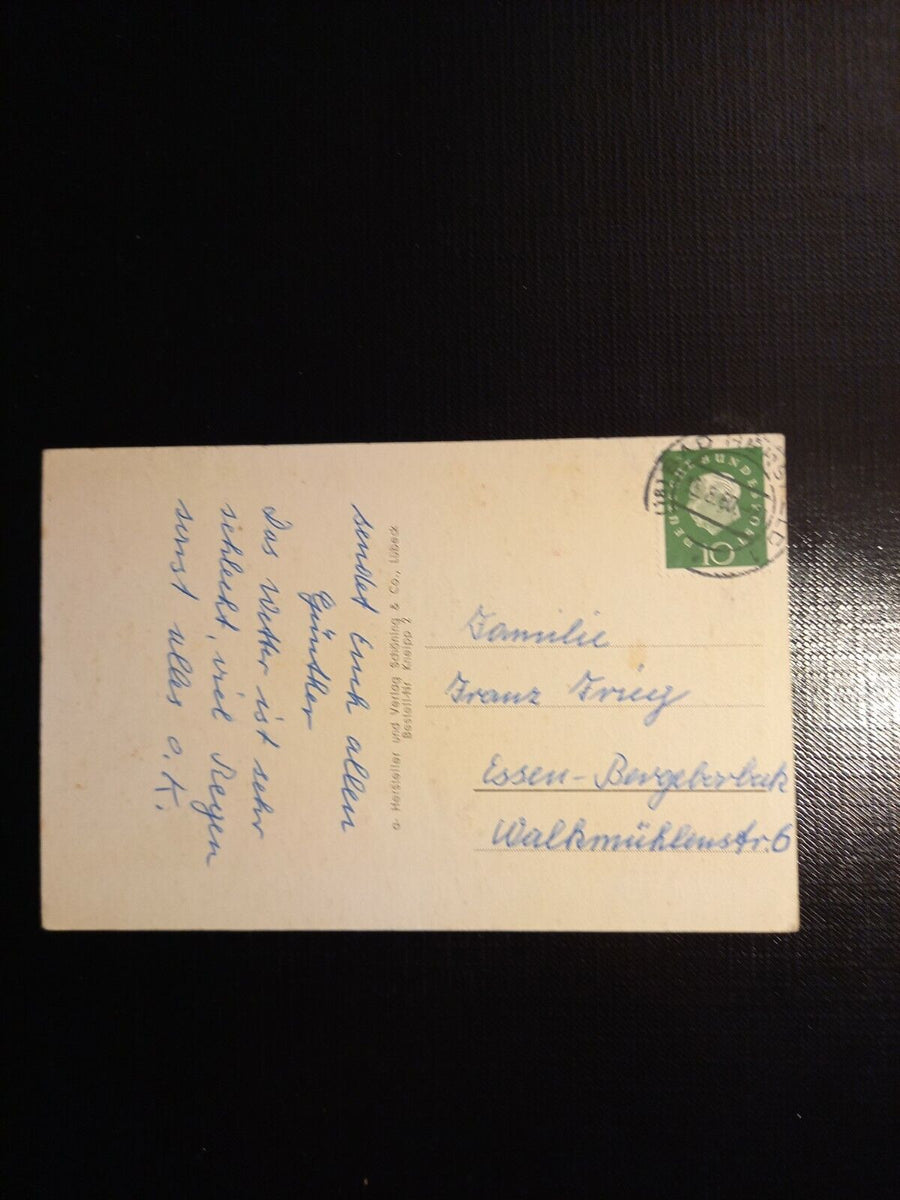 sendet Euch allen
Günther
Das Wetter ist sehr
schlecht, viel Regen
sonst alles o. K.
Hersteller und Verlag Schöning & Co., Lübeck
Bestell-Nr.
DEUTSCHE BUNDESPOST
10
Familie
Franz
Essen-Bergeborbeck
Walkmühlenstr. 6